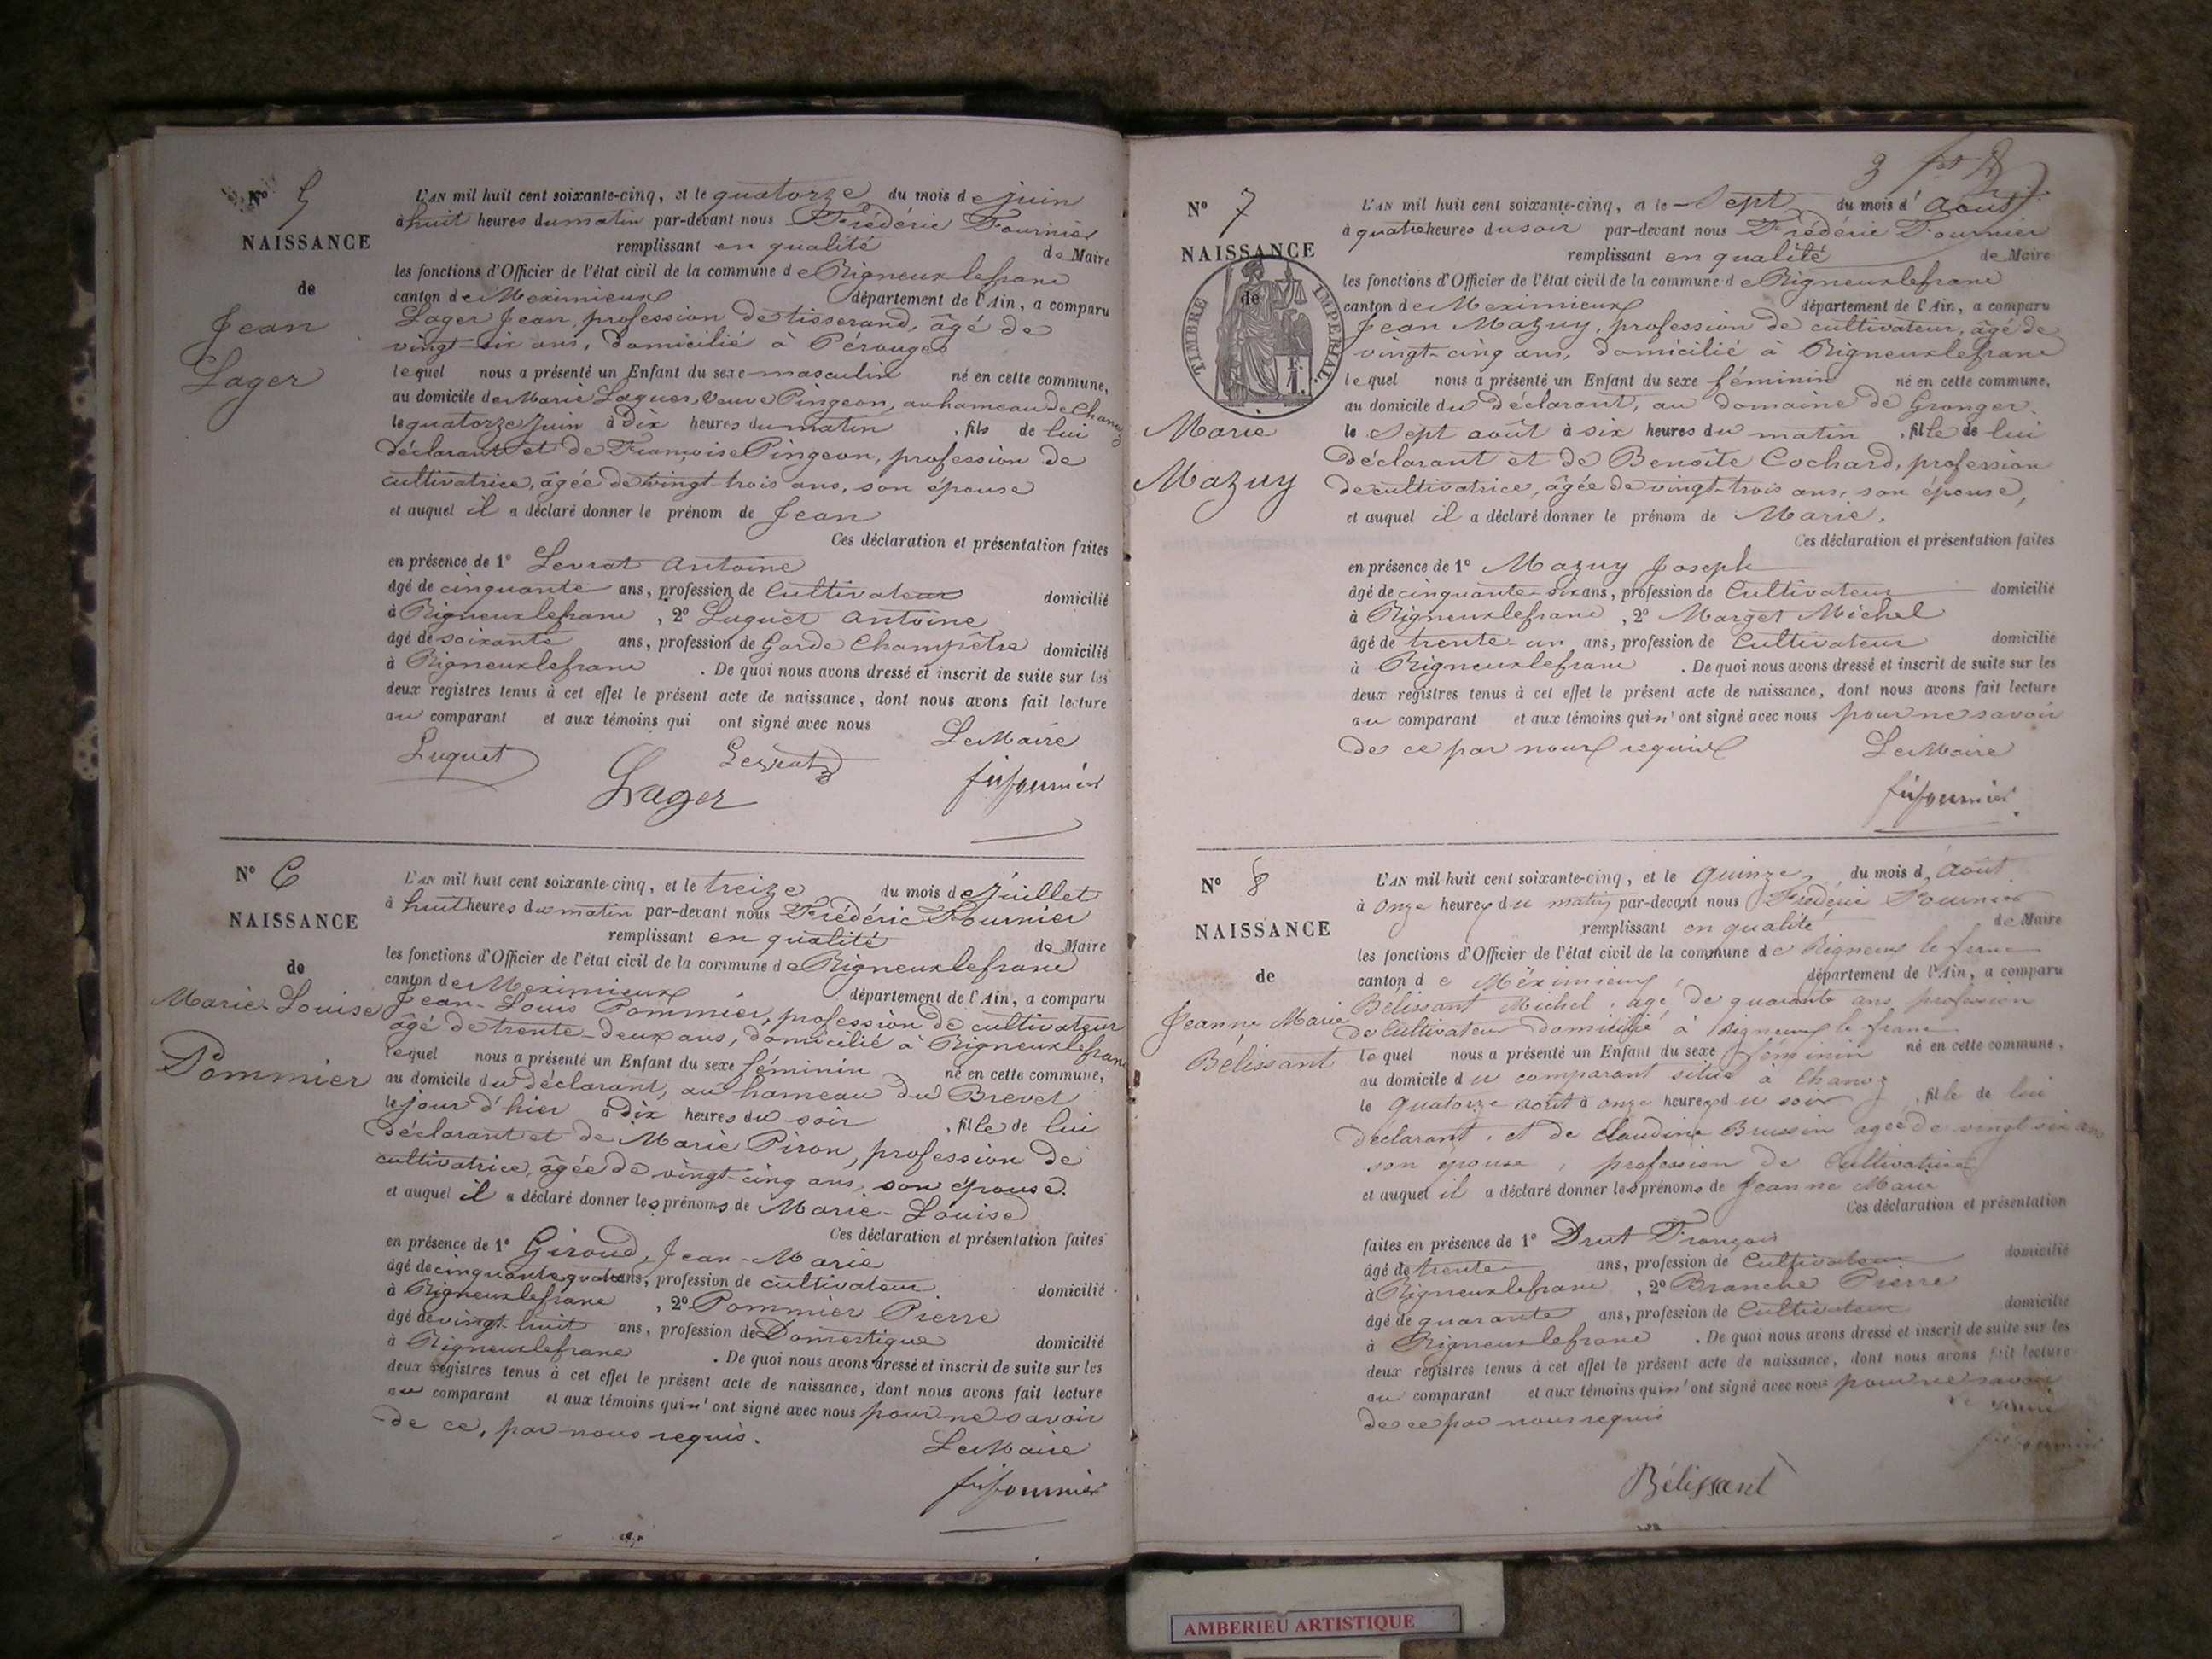 Nº 5
NAISSANCE
de
Jean
Lager
L'AN mil huit cent soixante-cinq, et le quatorze du mois de juin
à huit heures du matin par-devant nous Frédéric Fournier
remplissant en qualité de Maire
les fonctions d'Officier de l'état civil de la commune de Rigneuxlefranc
canton de Meximieux département de l'Ain, a comparu
Lager Jean, profession de tisserand, âgé de
vingt-six ans, domicilié à Pérouges
lequel nous a présenté un Enfant du sexe masculin né en cette commune,
au domicile de Marie Laguer, veuve Pingeon, au hameau de Chanoz
le quatorze juin à dix heures du matin , fils de lui
déclarant et de Françoise Pingeon, profession de
cultivatrice, âgée de vingt-trois ans, son épouse
et auquel il a déclaré donner le prénom de Jean
Ces déclaration et présentation faites
en présence de 1º Levrat Antoine
âgé de cinquante ans, profession de Cultivateur domicilié
à Rigneuxlefranc , 2º Luguet Antoine
âgé de soixante ans, profession de Garde Champêtre domicilié
à Rigneuxlefranc . De quoi nous avons dressé et inscrit de suite sur les
deux registres tenus à cet effet le présent acte de naissance, dont nous avons fait lecture
au comparant et aux témoins qui ont signé avec nous
Le Maire
Luguet Lager Levrat fr fournier
Nº 6
NAISSANCE
de
Marie-Louise
Pommier
L'AN mil huit cent soixante-cinq, et le treize du mois de juillet
à huit heures du matin par-devant nous Frédéric Fournier
remplissant en qualité de Maire
les fonctions d'Officier de l'état civil de la commune de Rigneuxlefranc
canton de Meximieux département de l'Ain, a comparu
Jean-Louis Pommier, profession de cultivateur
âgé de trente-deux ans, domicilié à Rigneuxlefranc
lequel nous a présenté un Enfant du sexe féminin né en cette commune,
au domicile du déclarant, au hameau du Brevet
le jour d'hier à dix heures du soir , fille de lui
déclarant et de Marie Piron, profession de
cultivatrice, âgée de vingt-cinq ans, son épouse.
et auquel il a déclaré donner les prénoms de Marie-Louise
Ces déclaration et présentation faites
en présence de 1º Giroud, Jean-Marie
âgé de cinquante quatre ans, profession de cultivateur domicilié
à Rigneuxlefranc , 2º Pommier Pierre
âgé de vingt-huit ans, profession de Domestique domicilié
à Rigneuxlefranc . De quoi nous avons dressé et inscrit de suite sur les
deux registres tenus à cet effet le présent acte de naissance, dont nous avons fait lecture
au comparant et aux témoins qui n'ont signé avec nous pour ne savoir
de ce, par nous requis.
Le Maire
fr fournier
3
Nº 7
NAISSANCE
de
TIMBRE IMPERIAL
1 F.
Marie
Mazuy
L'AN mil huit cent soixante-cinq, et le Sept du mois d'août
à quatre heures du soir par-devant nous Frédéric Fournier
remplissant en qualité de Maire
les fonctions d'Officier de l'état civil de la commune de Rigneuxlefranc
canton de Meximieux département de l'Ain, a comparu
Jean Mazuy, profession de cultivateur, âgé de
vingt-cinq ans, domicilié à Rigneuxlefranc
lequel nous a présenté un Enfant du sexe féminin né en cette commune,
au domicile du déclarant, au domaine de Granger.
le Sept août à six heures du matin , fille de lui
déclarant et de Benoîte Cochard, profession
de cultivatrice, âgée de vingt-trois ans, son épouse,
et auquel il a déclaré donner le prénom de Marie.
Ces déclaration et présentation faites
en présence de 1º Mazuy Joseph
âgé de cinquante-six ans, profession de Cultivateur domicilié
à Rigneuxlefranc , 2º Marget Michel
âgé de trente-un ans, profession de Cultivateur domicilié
à Rigneuxlefranc . De quoi nous avons dressé et inscrit de suite sur les
deux registres tenus à cet effet le présent acte de naissance, dont nous avons fait lecture
au comparant et aux témoins qui n'ont signé avec nous pour ne savoir
de ce par nous requis Le Maire
fr fournier
Nº 8
NAISSANCE
de
Jeanne Marie
Bélissant
L'AN mil huit cent soixante-cinq, et le quinze du mois d'Août
à onze heures du matin par-devant nous Frédéric Fournier
remplissant en qualité de Maire
les fonctions d'Officier de l'état civil de la commune de Rigneux le franc
canton de Méximieux département de l'Ain, a comparu
Bélissant Michel, âgé de quarante ans, profession
de Cultivateur domicilié à Rigneux le franc
lequel nous a présenté un Enfant du sexe féminin né en cette commune,
au domicile du comparant situé à Chanoz
le quatorze août à onze heures du soir , fille de lui
déclarant, et de Claudine Brussin agée de vingt six ans
son épouse, profession de Cultivatrice
et auquel il a déclaré donner les prénoms de Jeanne Marie
Ces déclaration et présentation
faites en présence de 1º Drut François
âgé de trente ans, profession de Cultivateur domicilié
à Rigneuxlefranc , 2º Branche Pierre
âgé de quarante ans, profession de Cultivateur domicilié
à Rigneuxlefranc . De quoi nous avons dressé et inscrit de suite sur les
deux registres tenus à cet effet le présent acte de naissance, dont nous avons fait lecture
au comparant et aux témoins qui n'ont signé avec nous pour ne savoir
de ce par nous requis
Le Maire
fr fournier
Bélissant
AMBERIEU ARTISTIQUE